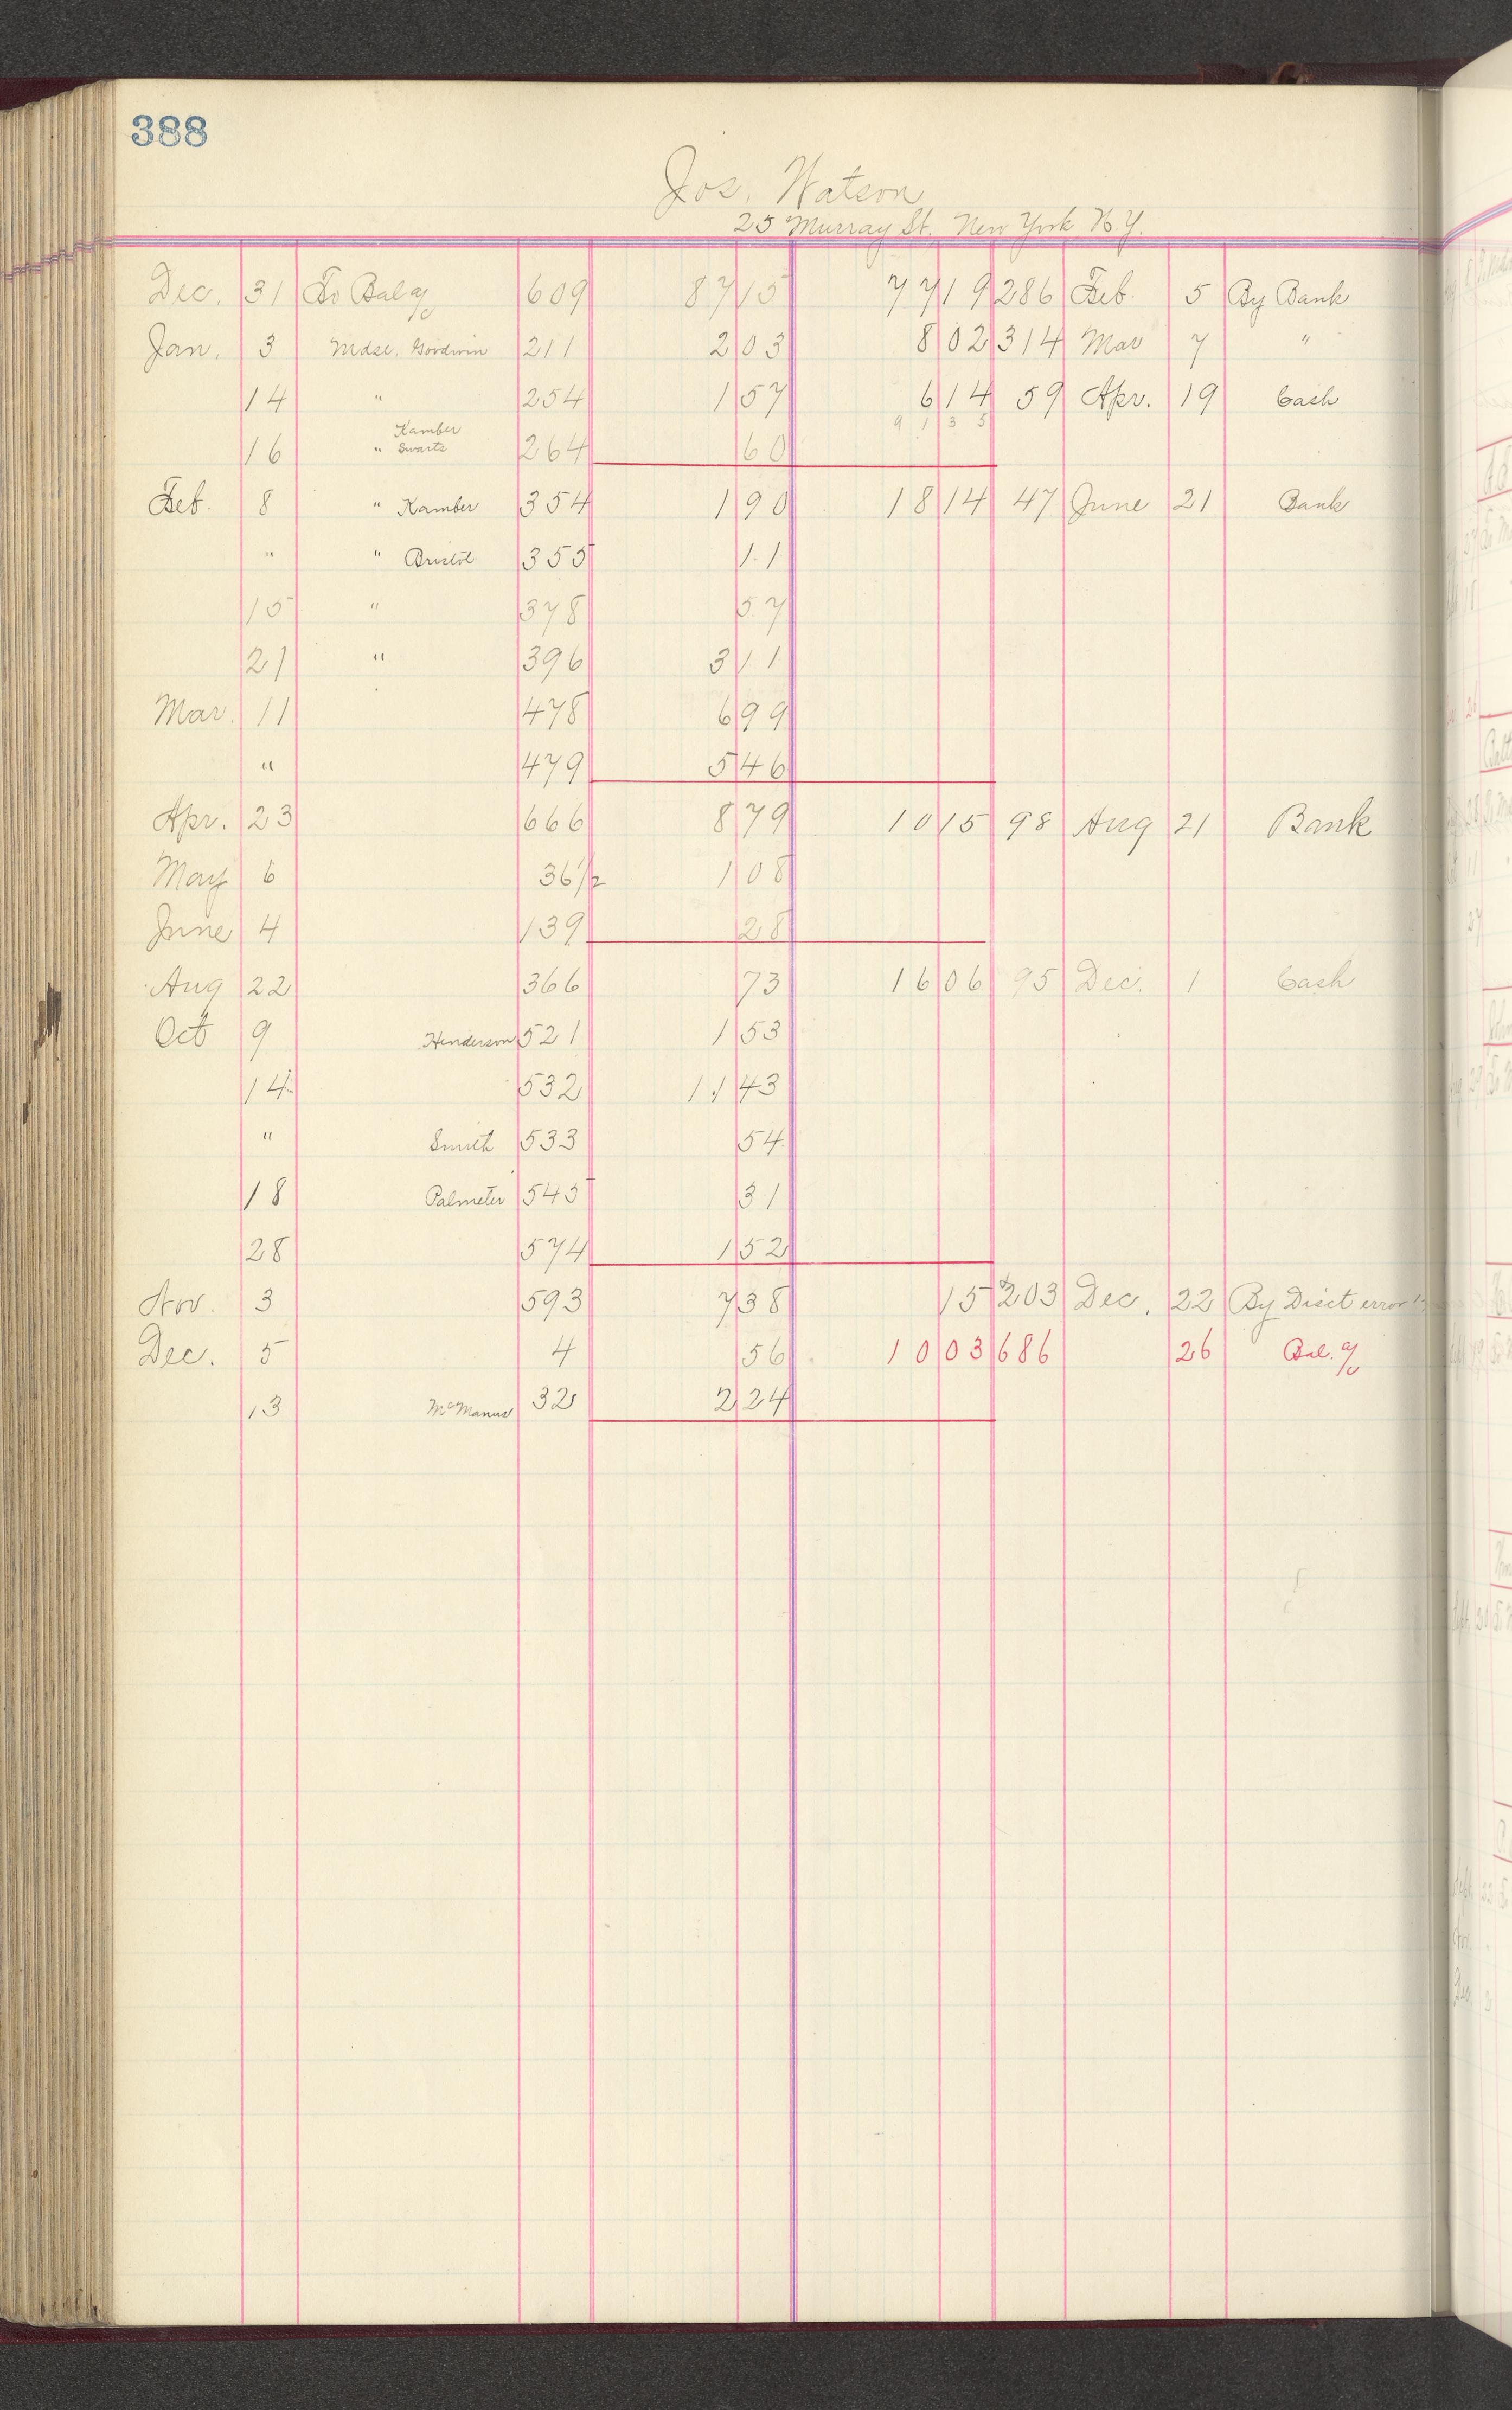 388
Jos. Watson
25 Murray St. New York, N.Y.
Dec. 31 To Bal a/c 609 87 15 77 19 286 Feb. 5 By Bank
Jan. 3 Mdse. Goodwin 211 2 03 8 02 314 Mar 7 "
14 " 254 1 57 6 14 59 Apr. 19 Cash
9 1 3 5
Kamber
16 " Swartz 264 60
Feb. 8 " Kamber 354 1 90 18 14 47 June 21 Bank
" " Bristol 355 11
15 " 378 57
21 " 396 3 11
Mar. 11 478 6 99
" 479 5 46
Apr. 23 666 8 79 10 15 98 Aug 21 Bank
May 6 36 1/2 1 08
June 4 139 28
Aug 22 366 73 16 06 95 Dec. 1 Cash
Oct 9 Henderson 521 1 53
14 532 11 43
" Smith 533 54
18 Palmeter 545 31
28 574 1 52
Nov. 3 593 7 38 15 203 Dec. 22 By Disct error
Dec. 5 4 56 10 03 686 26 Bal. a/c
13 McManus 32 2 24